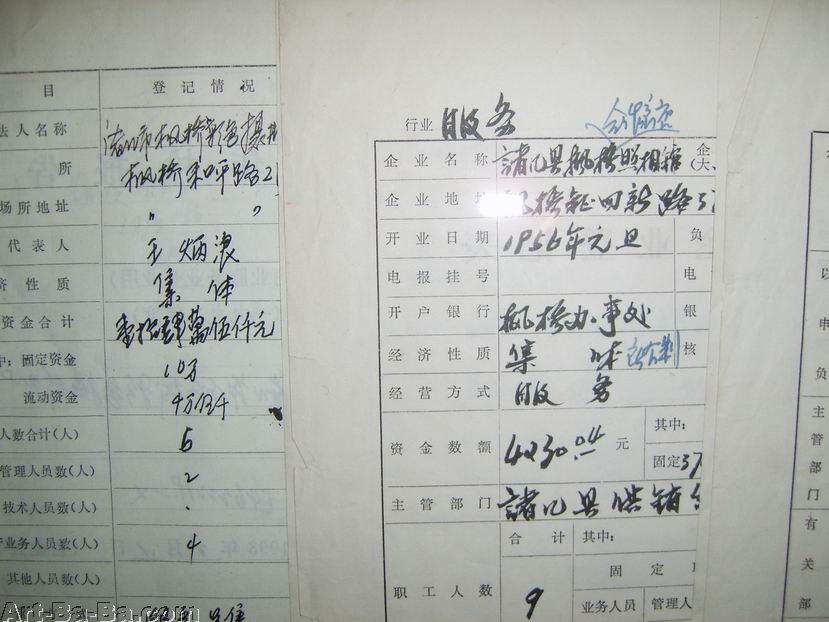 目 登记情况
法人名称 诸暨市枫桥
所 枫桥和平路2
场所地址 〃 〃
代表人 王炳浪
济性质 集体
资金合计 壹拾肆萬伍仟元
中：固定资金 10万
流动资金 4万伍千
人数合计(人) 6
管理人员数(人) 2
技术人员数(人)
业务人员数(人) 4
其他人员数(人)
行业 服务
企业名称 諸暨县枫桥照相館 企(大、
企业地址 枫桥镇四新路
开业日期 1956年元旦 负
电报挂号 电
开户银行 枫桥办事处 银
经济性质 集体 核
经营方式 服务
资金数额 4230.04元 其中：
固定 37
主管部门 諸暨县供销
职工人数 合计 其中：
固定
9 业务人员 管理人
以
申
负
主管部门
有关部
1998年
Art-Ba-Ba.com